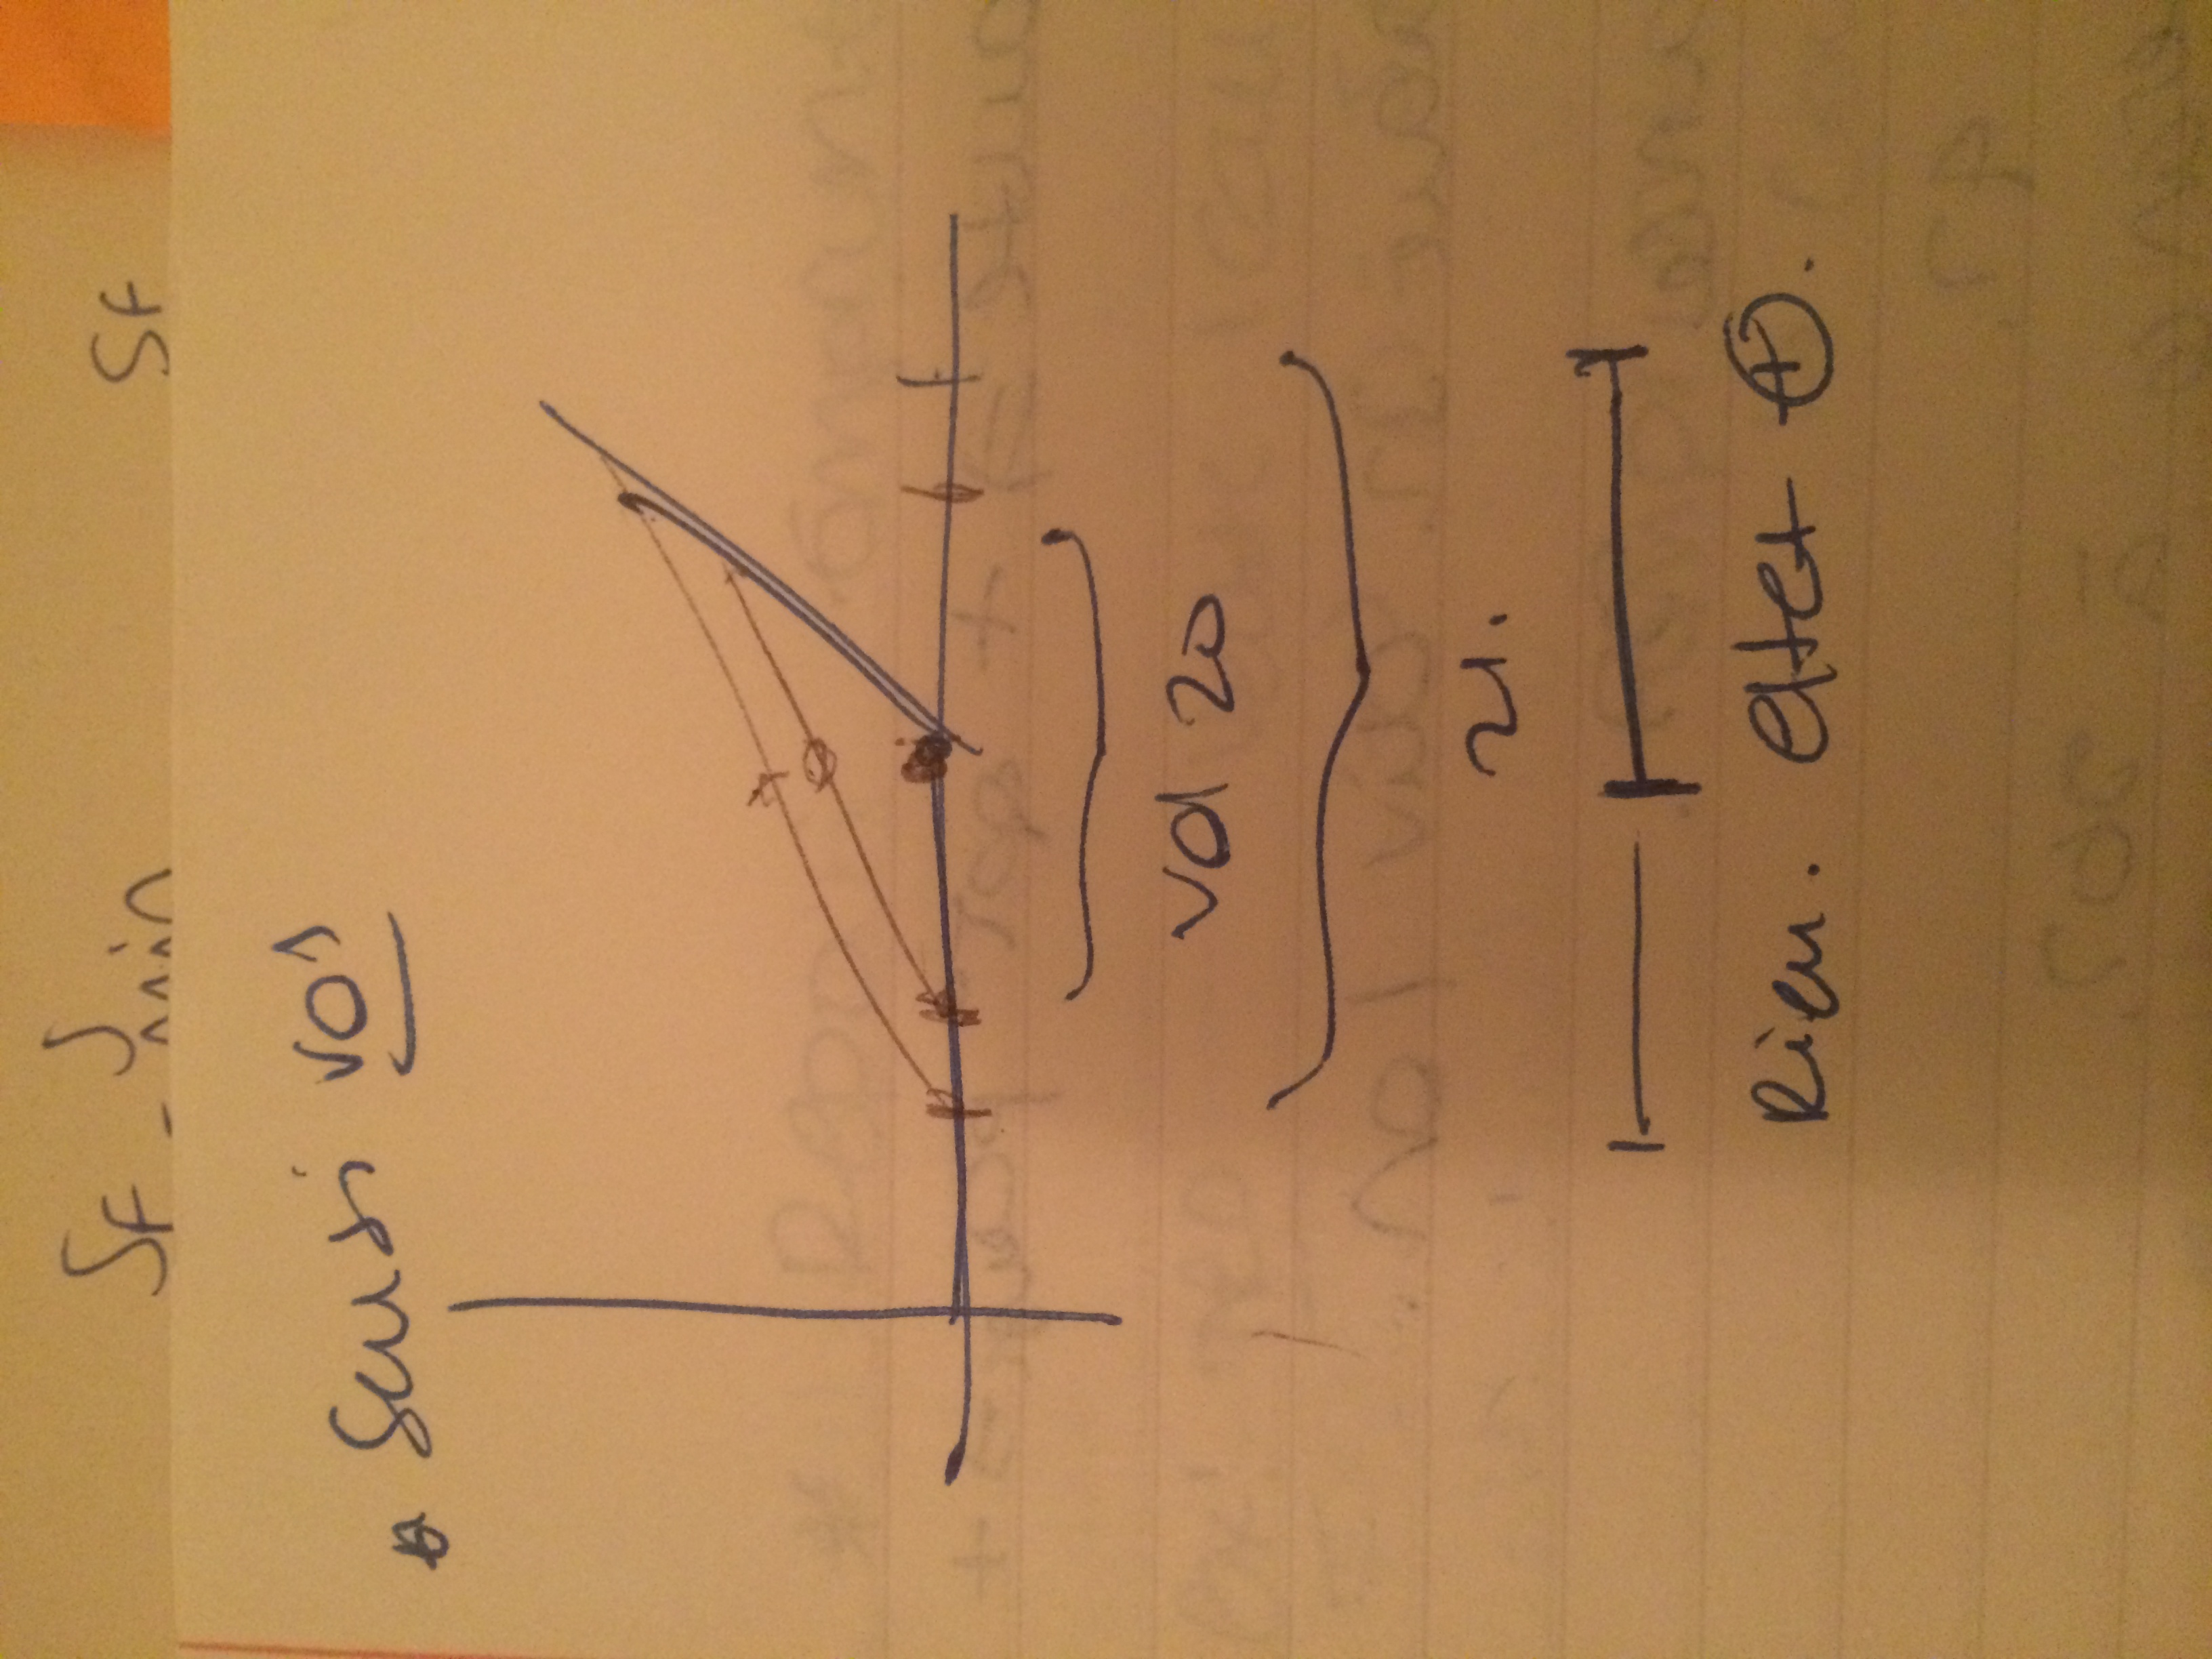 SF - Smin SF
Sensi vol
vol 20
21.
Rien. effet +.